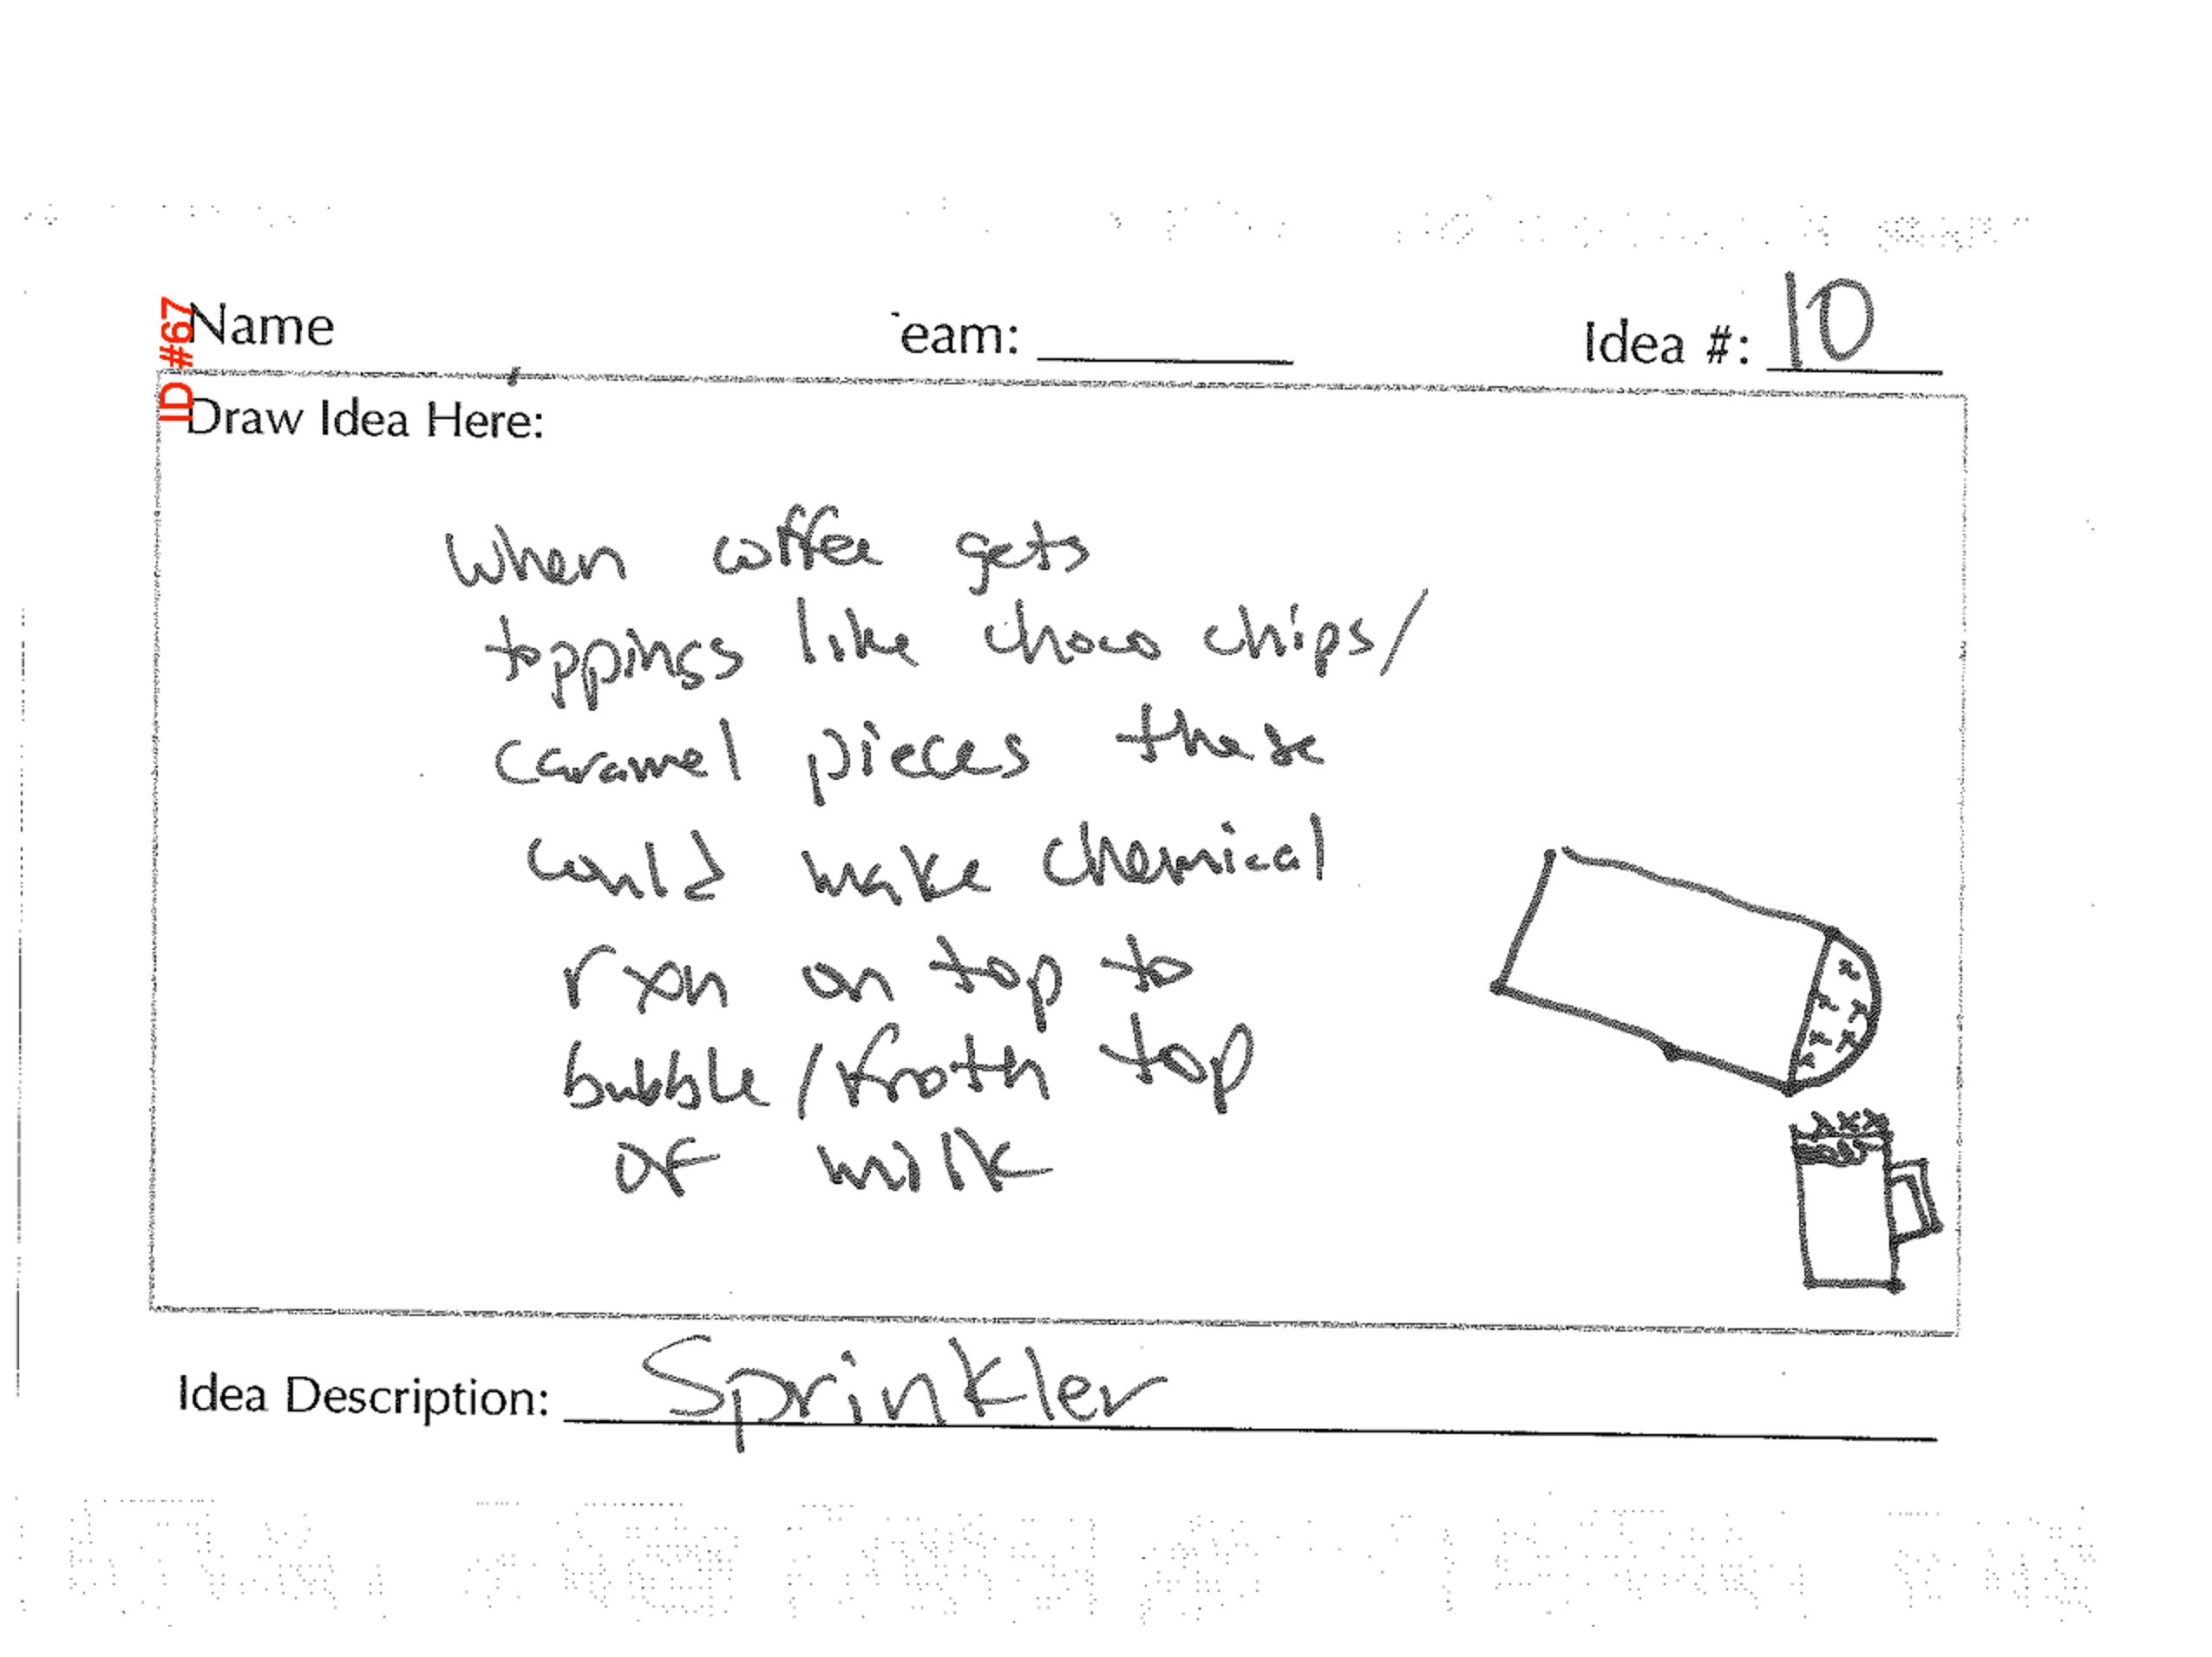 ID #67
Name
eam:
Idea #: 10
Draw Idea Here:
When coffee gets
toppings like choco chips/
caramel pieces these
could make chemical
rxn on top to
bubble/froth top
of milk
Idea Description: Sprinkler